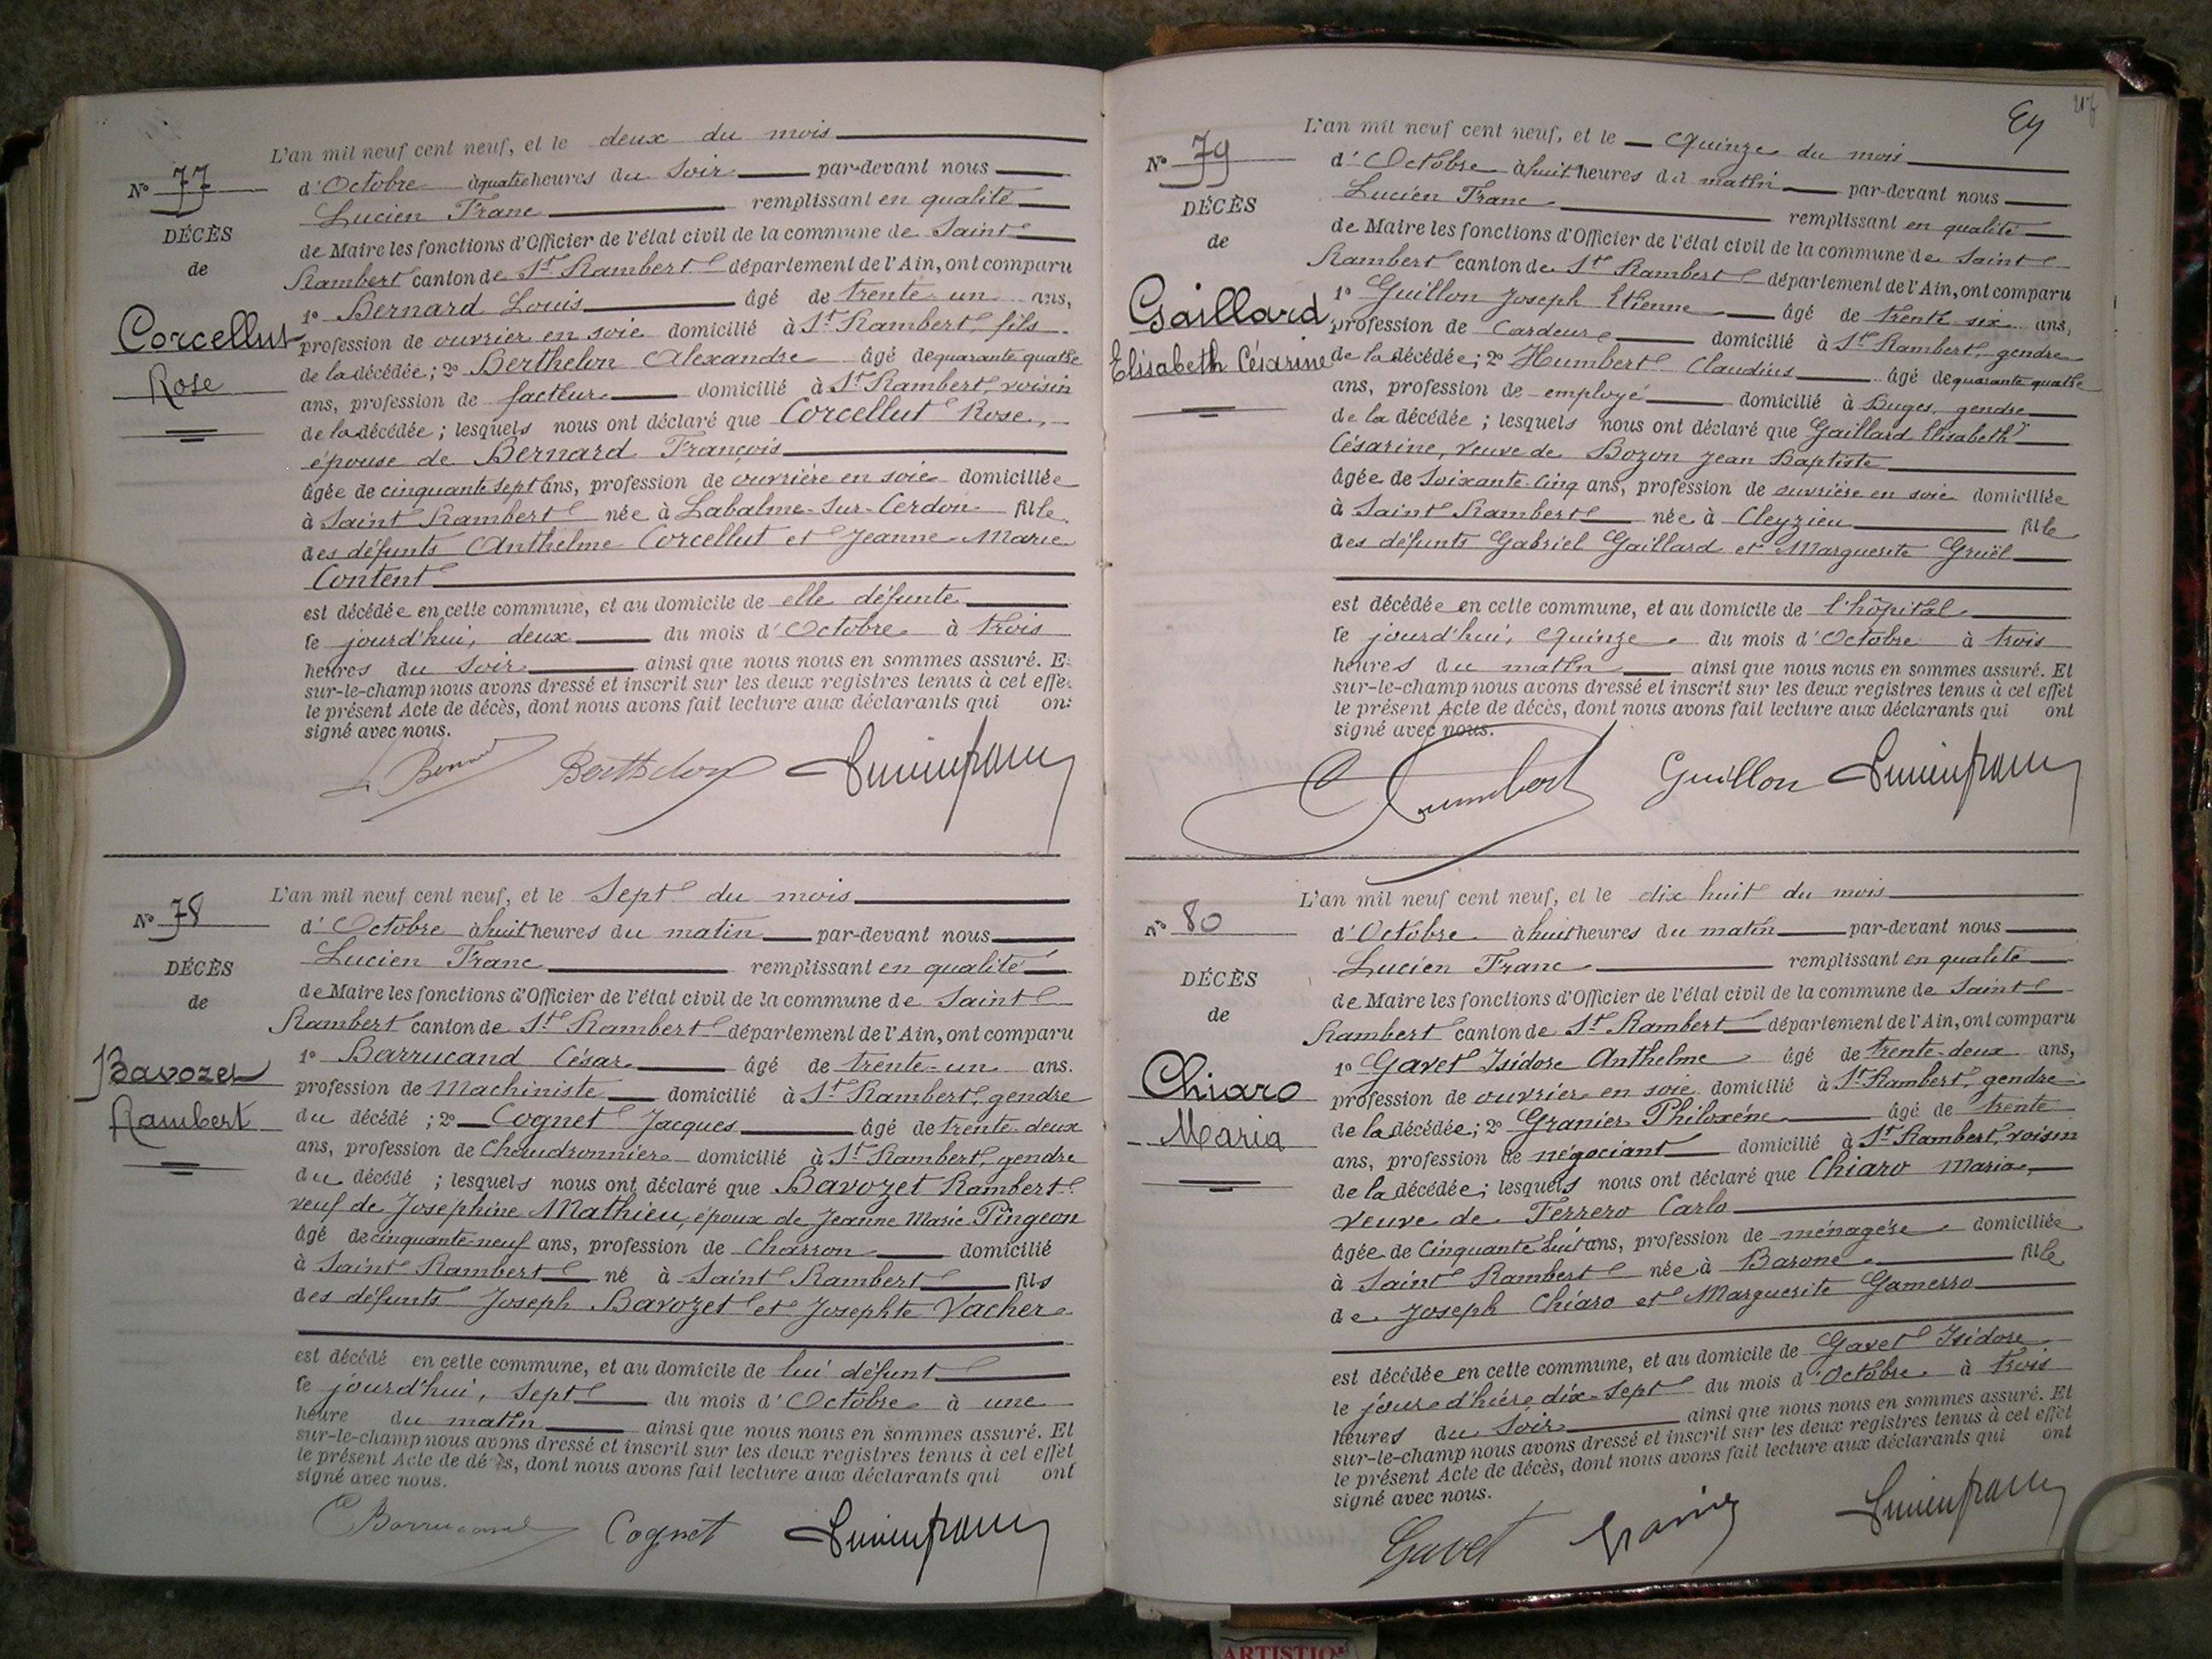 L'an mil neuf cent neuf, et le deux du mois
N° 77
d'Octobre à quatre heures du soir par-devant nous
Lucien Franc remplissant en qualité
DÉCÈS
de Maire les fonctions d'Officier de l'état civil de la commune de Saint
de
Rambert canton de St Rambert département de l'Ain, ont comparu
1° Bernard Louis âgé de trente un ans,
Corcellut
profession de ouvrier en soie domicilié à St Rambert, fils
Rose
de la décédée; 2° Berthelon Alexandre âgé de quarante quatre
ans, profession de facteur domicilié à St Rambert, voisin
de la décédée; lesquels nous ont déclaré que Corcellut Rose,
épouse de Bernard François
âgée de cinquante sept ans, profession de ouvrière en soie domiciliée
à Saint Rambert née à Labalme-sur-Cerdon fille
des défunts Anthelme Corcellut et Jeanne-Marie
Content
est décédée en cette commune, et au domicile de elle défunte
le jourd'hui, deux du mois d'Octobre à trois
heures du soir ainsi que nous nous en sommes assuré. E
sur-le-champ nous avons dressé et inscrit sur les deux registres tenus à cet effe
le présent Acte de décès, dont nous avons fait lecture aux déclarants qui on
signé avec nous.
Berthelon Lucien franc
L'an mil neuf cent neuf, et le Sept du mois
N° 78
d'Octobre à huit heures du matin par-devant nous
Lucien Franc remplissant en qualité
DÉCÈS
de Maire les fonctions d'Officier de l'état civil de la commune de Saint
de
Rambert canton de St Rambert département de l'Ain, ont comparu
1° Barrucand César âgé de trente-un ans.
Bavozet
profession de Machiniste domicilié à St Rambert, gendre
Rambert
du décédé; 2° Cognet Jacques âgé de trente-deux
ans, profession de Chaudronnier domicilié à St Rambert, gendre
du décédé; lesquels nous ont déclaré que Bavozet Rambert
veuf de Josephine Mathieu, époux de Jeanne Marie Pingeon
âgé de cinquante-neuf ans, profession de Charron domicilié
à Saint Rambert né à Saint Rambert fils
des défunts Joseph Bavozet et Josephte Vacher
est décédé en cette commune, et au domicile de lui défunt
le jourd'hui, sept du mois d'Octobre à une
heure du matin ainsi que nous nous en sommes assuré. Et
sur-le-champ nous avons dressé et inscrit sur les deux registres tenus à cet effet
le présent Acte de décès, dont nous avons fait lecture aux déclarants qui ont
signé avec nous.
C Barrucand Cognet Lucien franc
L'an mil neuf cent neuf, et le Quinze du mois
N° 79
d'Octobre à huit heures du matin par-devant nous
Lucien Franc remplissant en qualité
DÉCÈS
de Maire les fonctions d'Officier de l'état civil de la commune de Saint
de
Rambert canton de St Rambert département de l'Ain, ont comparu
1° Guillon Joseph Etienne âgé de trente six ans,
Gaillard
profession de Cardeur domicilié à St Rambert, gendre
Elisabeth Césarine
de la décédée; 2° Humbert Claudius âgé de quarante quatre
ans, profession de employé domicilié à Buges, gendre
de la décédée; lesquels nous ont déclaré que Gaillard Elisabeth
Césarine, veuve de Bozon Jean Baptiste
âgée de Soixante-Cinq ans, profession de ouvrière en soie domiciliée
à Saint Rambert née à Cleyzieu fille
des défunts Gabriel Gaillard et Marguerite Gruël
est décédée en cette commune, et au domicile de l'hôpital
le jourd'hui, Quinze du mois d'Octobre à trois
heures du matin ainsi que nous nous en sommes assuré. Et
sur-le-champ nous avons dressé et inscrit sur les deux registres tenus à cet effet
le présent Acte de décès, dont nous avons fait lecture aux déclarants qui ont
signé avec nous.
C Humbert Guillon Lucien franc
L'an mil neuf cent neuf, et le dix huit du mois
N° 80
d'Octobre à huit heures du matin par-devant nous
Lucien Franc remplissant en qualité
DÉCÈS
de Maire les fonctions d'Officier de l'état civil de la commune de Saint
de
Rambert canton de St Rambert département de l'Ain, ont comparu
1° Gavet Isidore Anthelme âgé de trente-deux ans,
Chiaro
profession de ouvrier en soie domicilié à St Rambert, gendre
Maria
de la décédée; 2° Granier Philoxène âgé de trente
ans, profession de négociant domicilié à St Rambert, voisin
de la décédée; lesquels nous ont déclaré que Chiaro Maria,
veuve de Ferrero Carlo
âgée de Cinquante huit ans, profession de ménagère domiciliée
à Saint Rambert née à Barone fille
de Joseph Chiaro et Marguerite Gamerro
est décédée en cette commune, et au domicile de Gavet Isidore
le jour d'hier dix-sept du mois d'Octobre à trois
heures du soir ainsi que nous nous en sommes assuré. Et
sur-le-champ nous avons dressé et inscrit sur les deux registres tenus à cet effet
le présent Acte de décès, dont nous avons fait lecture aux déclarants qui ont
signé avec nous.
Gavet Granier Lucien franc
ARTISTIQ